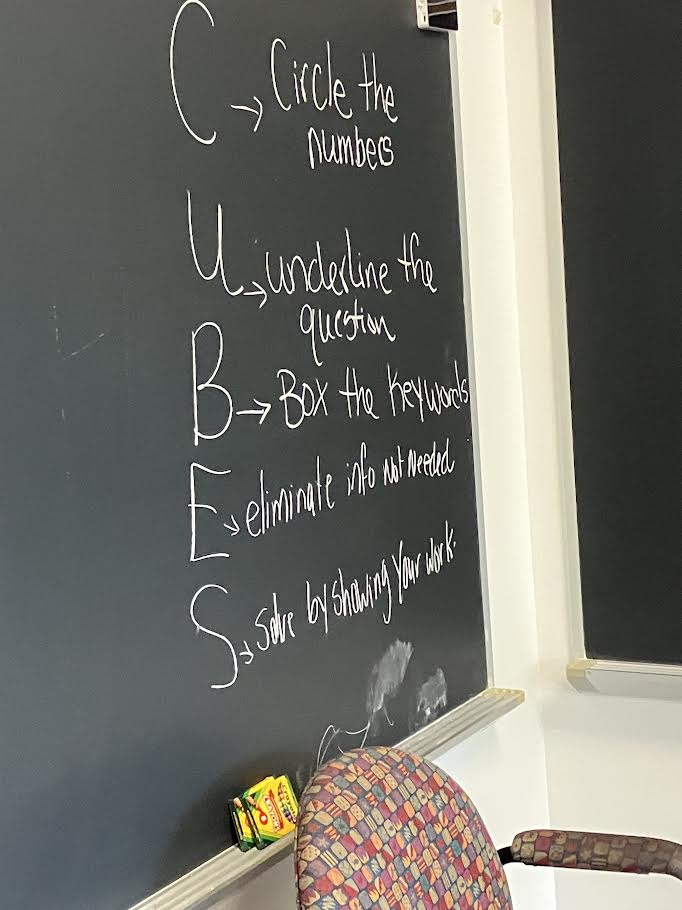 C → Circle the
numbers
U → underline the
question
B → Box the keywords
E → eliminate info not needed
S → solve by showing your work.
Crayola